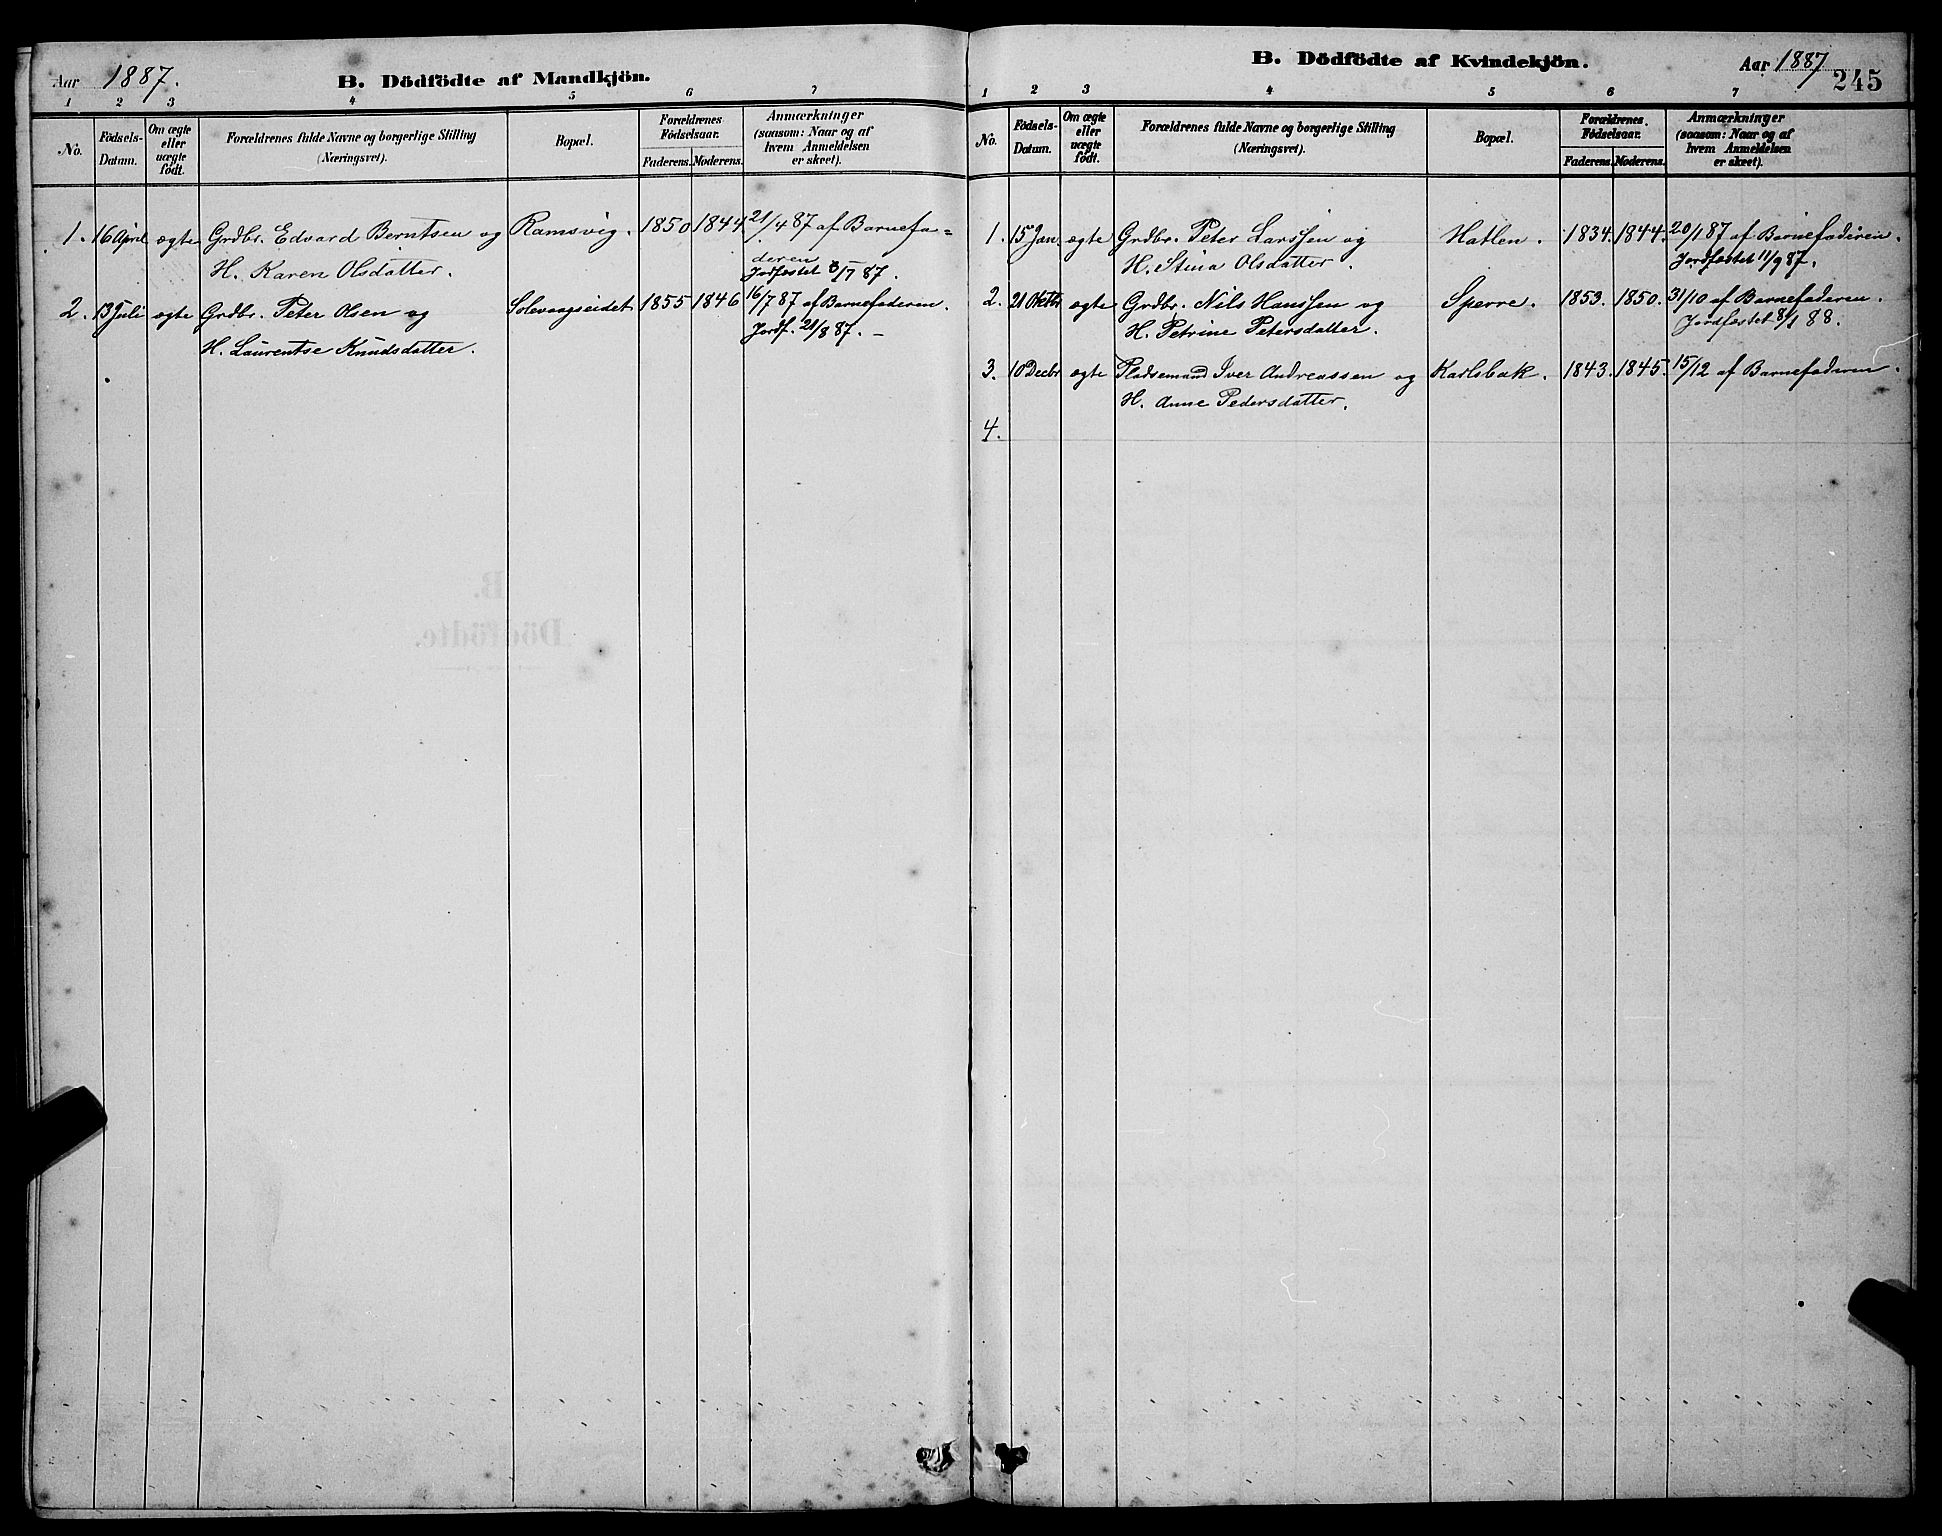 Aar 1887. B. Dödfödte af Mandkjön.
1 2 3 4 5 6 7
No. Födsels-Datum. Om ægte eller uægte födt. Forældrenes fulde Navne og borgerlige Stilling (Næringsvei). Bopæl. Forældrenes Födselsaar. Faderens. Moderens. Anmærkninger (saasom: Naar og af hvem Anmeldelsen er skeet).
1. 16 April ægte Grdbr. Edvard Berntsen og Ramsvig. 1850 1844 21/4 87 af Barnefa-
deren
H. Karen Olsdatter. Jordfæstet 3/7 87.
2. 13 Juli ægte Grdbr. Peter Olsen og Solevaagseidet 1855 1846 16/7 87 af Barnefaderen.
H. Laurentse Knudsdatter. Jordf. 21/8 87. –
B. Dödfödte af Kvindekjön. Aar 1887
245
1 2 3 4 5 6 7
No. Födsels-Datum. Om ægte eller uægte födt. Forældrenes fulde Navne og borgerlige Stilling (Næringsvei). Bopæl. Forældrenes Födselsaar. Faderens. Moderens. Anmærkninger (saasom: Naar og af hvem Anmeldelsen er skeet).
1. 15 Jan ægte Grdbr. Peter Larssen og Hatlen. 1834. 1844. 20/1 87 af Barnefaderen.
H. Stina Olsdatter. Jordfæstet 11/9 87.
2. 21 Oktbr ægte Grdbr. Nils Hanssen og Sperre. 1853. 1850. 31/10 af Barnefaderen.
H. Petrine Petersdatter. Jordfæstet 8/1 88.
3. 10 Decbr ægte Pladsemand Iver Andreassen og Karlsbak. 1843. 1845. 15/12 af Barnefaderen.
H. Anne Pedersdatter.
4.